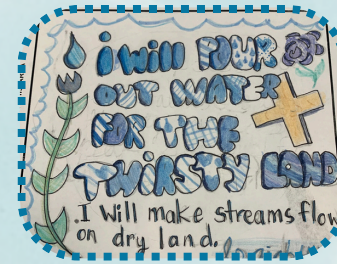 i will POUR
OUT WATER
FOR THE
THIRSTY LAND
.I Will make streams flow
on dry land.